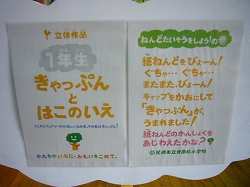 立体作品
1年生
きゃっぷんと
はこのいえ
かたちやいろに、おもいをこめて。
ねんどたいそうをしよう！の巻
紙ねんどをびよーん！
ぐちゃ…ぐちゃ…
またまた、びよーん！
キャップをかおにして
「きゃっぷん」が、
うまれました！
紙ねんどのかんしょくを
あじわえたかな？